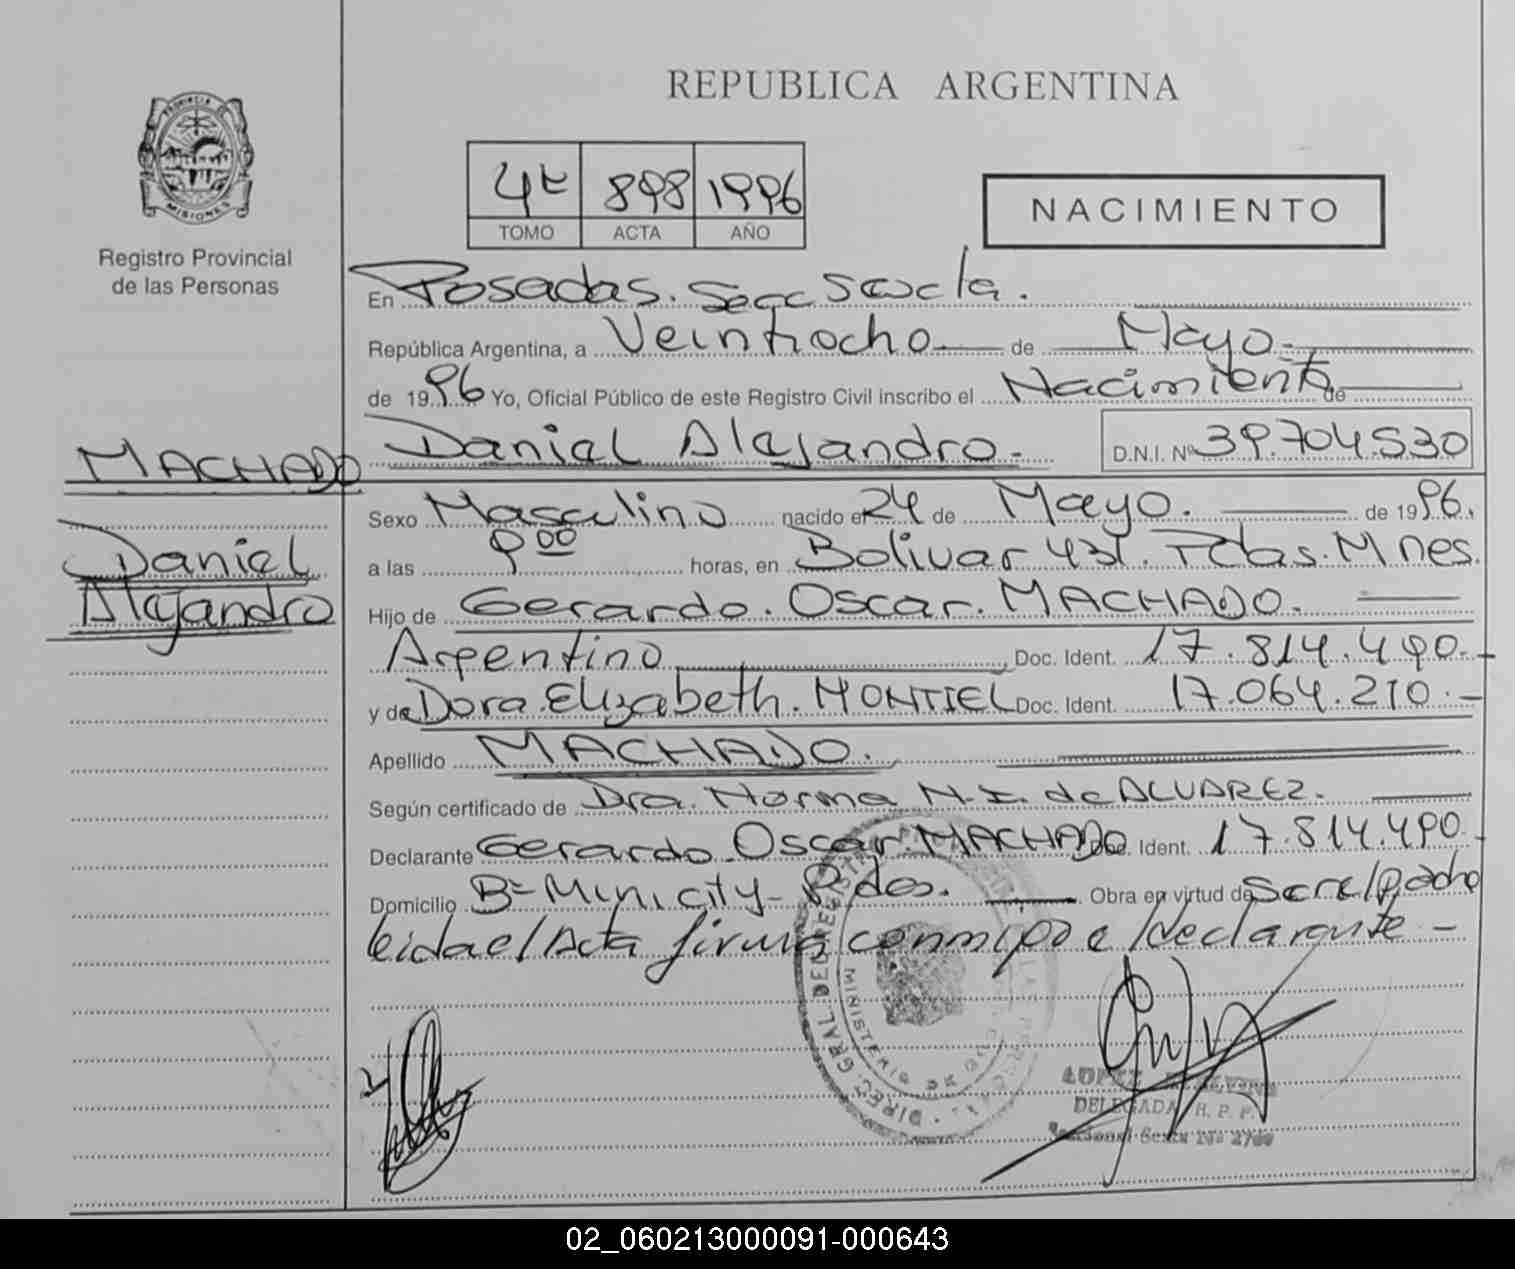 REPUBLICA ARGENTINA
PROVINCIA DE
MISIONES
Registro Provincial
de las Personas
4t 898 1996
TOMO ACTA AÑO
NACIMIENTO
En Posadas. Secc Sexta.
República Argentina, a Veintiocho de Mayo.
de 1996 Yo, Oficial Público de este Registro Civil inscribo el Nacimiento de
MACHADO
Daniel Alejandro.- D.N.I. Nº 39.704.530
Daniel
Alejandro
Sexo Masculino nacido el 24 de Mayo. de 1996.
a las 9 00 horas, en Bolivar 431. Pdas. Mnes.
Hijo de Gerardo. Oscar. MACHADO.
Argentino Doc. Ident. 17.814.490.-
y de Dora. Elizabeth. MONTIEL Doc. Ident. 17.064.210.-
Apellido MACHADO.
Según certificado de Dra. Norma N. I. de ALVAREZ.
Declarante Gerardo. Oscar. MACHADO Doc. Ident. 17.814.490.-
Domicilio Bº Mini city- Pdas. Obra en virtud de ser el/padre
leida el/Acta firma conmigo el/declarante -
DIREC. GRAL. DEL REGIST
MINISTERIO DE GO
LOPEZ
DELEGADA R. P. P.
Seccional Sexta Nº
02_060213000091-000643